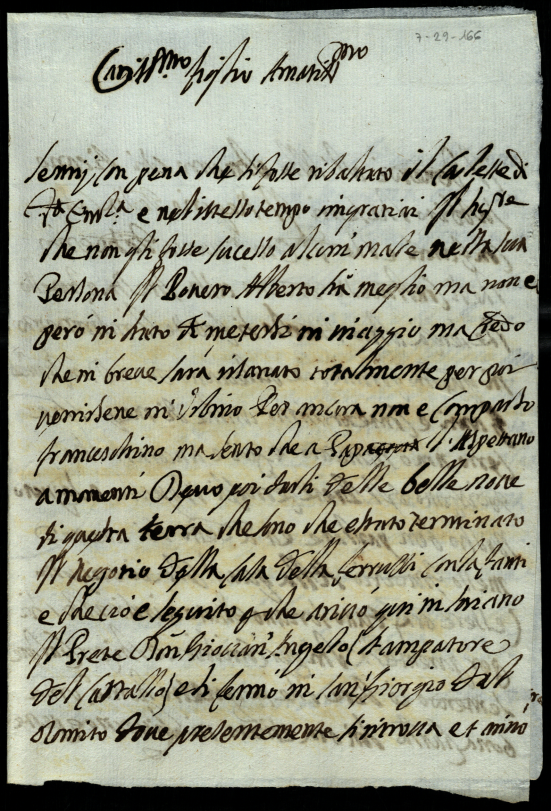 7-29-166
Cariss.mo figlio Amatiss.mo
sentij con pena che si fosse ribaltato il Calesse di
e nel istesso tempo ringratiai Il sig.re
che non gli fosse sucesso alcun male nella sua
Persona Il Povero Alberto stà meglio ma non e
però in stato di metersi in viaggio ma credo
che in breve sarà risanato totalmente per poi
venirsene in Urbino Per ancora non e comparso
franceschino ma sento che a l'Aspettano
a momenti Devo poi darli delle belle nove
di questa terra che sono che e stato terminato
Il negotio della casa della con la fanti
e che ciò e seguito che arivò qui in
Il Prete Don Giovan Angelo stampatore
del e si fermò in San Giorgio dal
dove presentemente si ritrova et